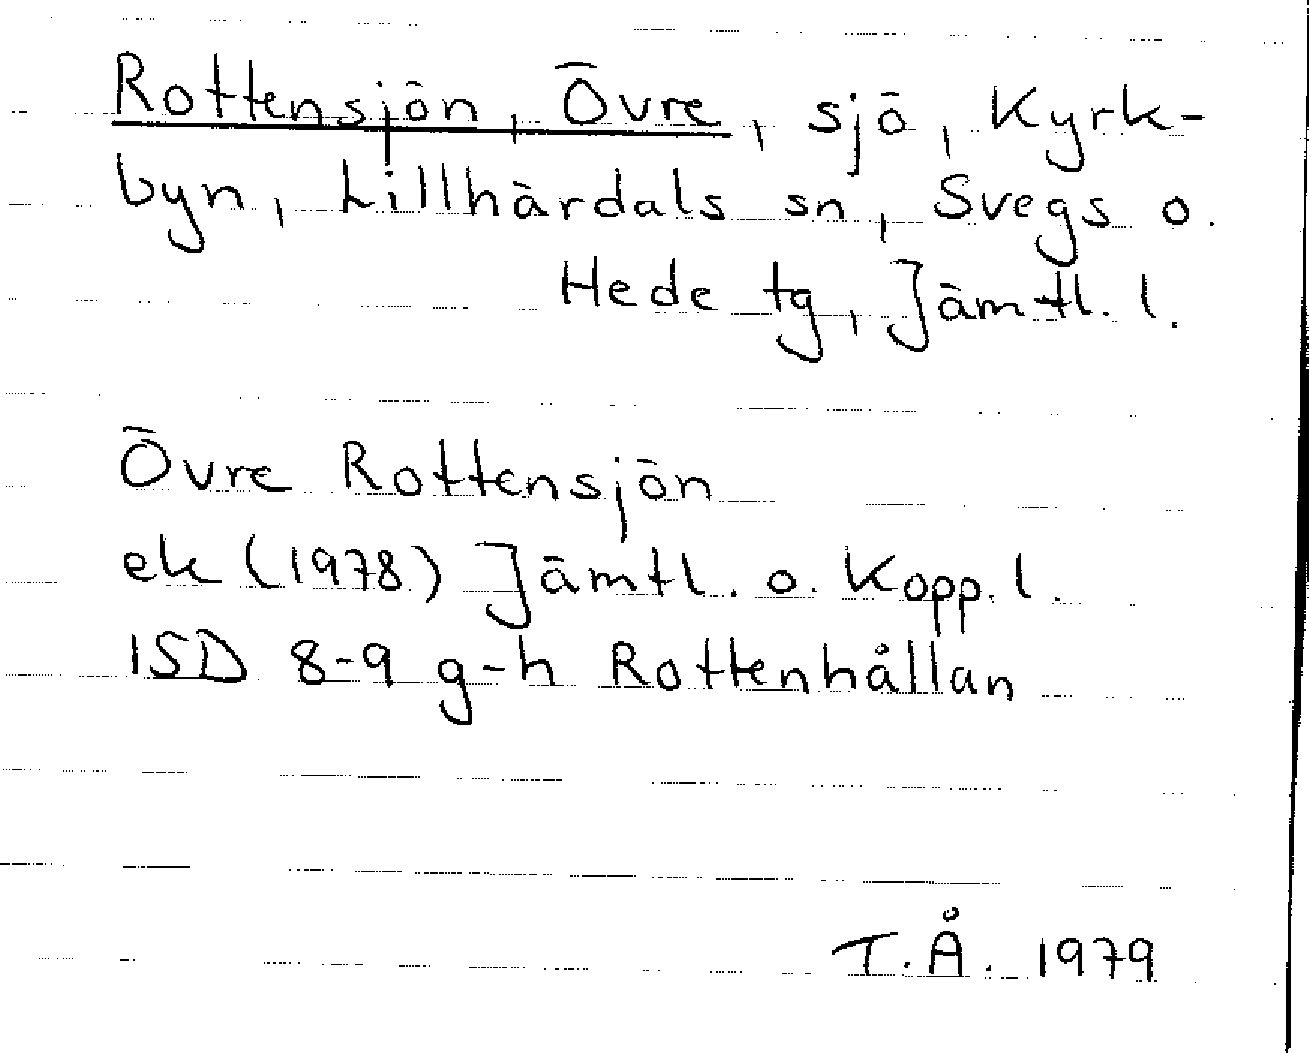 Rottensjön, Övre, sjö, Kyrk-
byn, Lillhärdals sn, Svegs o.
Hede tg, Jämtl. l.
Övre Rottensjön
ek (1978) Jämtl. o. Kopp. l.
15D 8-9 g-h Rottenhållan
T.Å. 1979